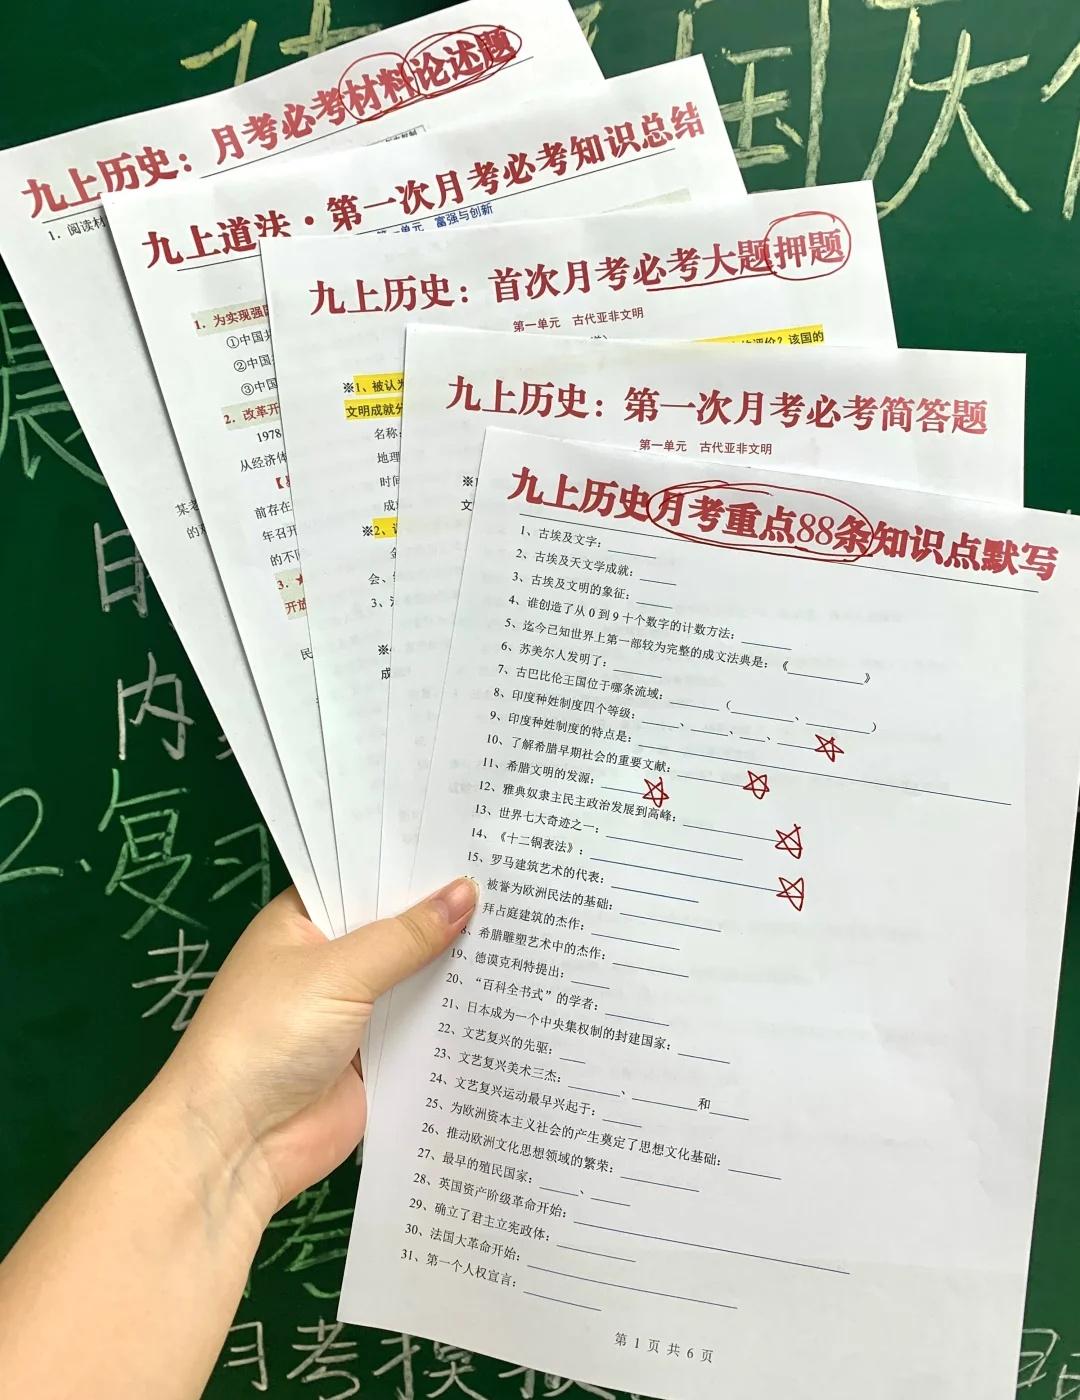 国庆
晨
内
2.复习
考
考
月考摸
九上历史：月考必考材料论述题
1. 阅读材
九上道法·第一次月考必考知识总结
第一单元 富强与创新
1. 为实现强国
①中国共
②中国
③中国
2. 改革开
1978
从经济体
前存在
年召开
的不同
3. ★
开放
九上历史：首次月考必考大题押题
第一单元 古代亚非文明
评价？该国的
※1、被认为
文明成就分
名称：
地理
时间
成就
※2、
会、
3、
九上历史：第一次月考必考简答题
第一单元 古代亚非文明
文
成
九上历史月考重点88条知识点默写
1、古埃及文字：
2、古埃及天文学成就：
3、古埃及文明的象征：
4、谁创造了从 0 到 9 十个数字的计数方法：
5、迄今已知世界上第一部较为完整的成文法典是：《 》
6、苏美尔人发明了：
7、古巴比伦王国位于哪条流域： （ 、 ）
8、印度种姓制度四个等级： 、 、 、
9、印度种姓制度的特点是：
10、了解希腊早期社会的重要文献：
11、希腊文明的发源：
12、雅典奴隶主民主政治发展到高峰：
13、世界七大奇迹之一：
14、《十二铜表法》：
15、罗马建筑艺术的代表：
被誉为欧洲民法的基础：
拜占庭建筑的杰作：
8、希腊雕塑艺术中的杰作：
19、德谟克利特提出：
20、“百科全书式”的学者：
21、日本成为一个中央集权制的封建国家：
22、文艺复兴的先驱：
23、文艺复兴美术三杰： 、 和
24、文艺复兴运动最早兴起于：
25、为欧洲资本主义社会的产生奠定了思想文化基础：
26、推动欧洲文化思想领域的繁荣：
27、最早的殖民国家： 、
28、英国资产阶级革命开始：
29、确立了君主立宪政体：
30、法国大革命开始：
31、第一个人权宣言：
第 1 页 共 6 页